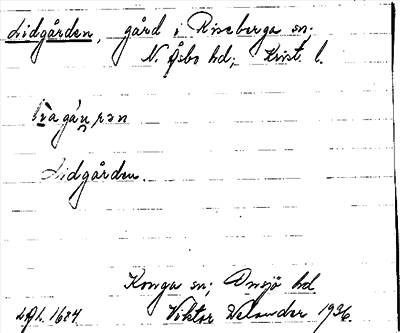 Lidgården, gård i Riseberga sn;
N. Åsbo hd; Krist. l.
Lidgården.
Konga sn; Onsjö hd
Viktor Welander 1936.